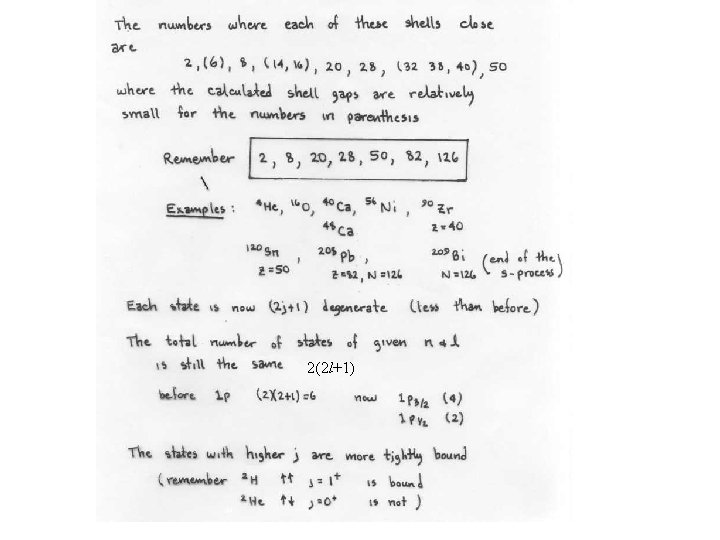 The numbers where each of these shells close
are
2, (6), 8, (14, 16), 20, 28, (32 38, 40), 50
where the calculated shell gaps are relatively
small for the numbers in parenthesis
Remember 2, 8, 20, 28, 50, 82, 126
Examples: ⁴He, ¹⁶O, ⁴⁰Ca, ⁵⁶Ni, ⁹⁰Zr
⁴⁸Ca z=40
¹²⁰Sn, ²⁰⁸Pb, ²⁰⁹Bi (end of the
z=50 z=82, N=126 N=126 s-process)
Each state is now (2j+1) degenerate (less than before)
The total number of states of given n & l
is still the same 2(2l+1)
before 1p (2)(2+1)=6 now 1p3/2 (4)
1p1/2 (2)
The states with higher j are more tightly bound
(remember ²H ↑↑ j=1⁺ is bound
²He ↑↓ j=0⁺ is not)